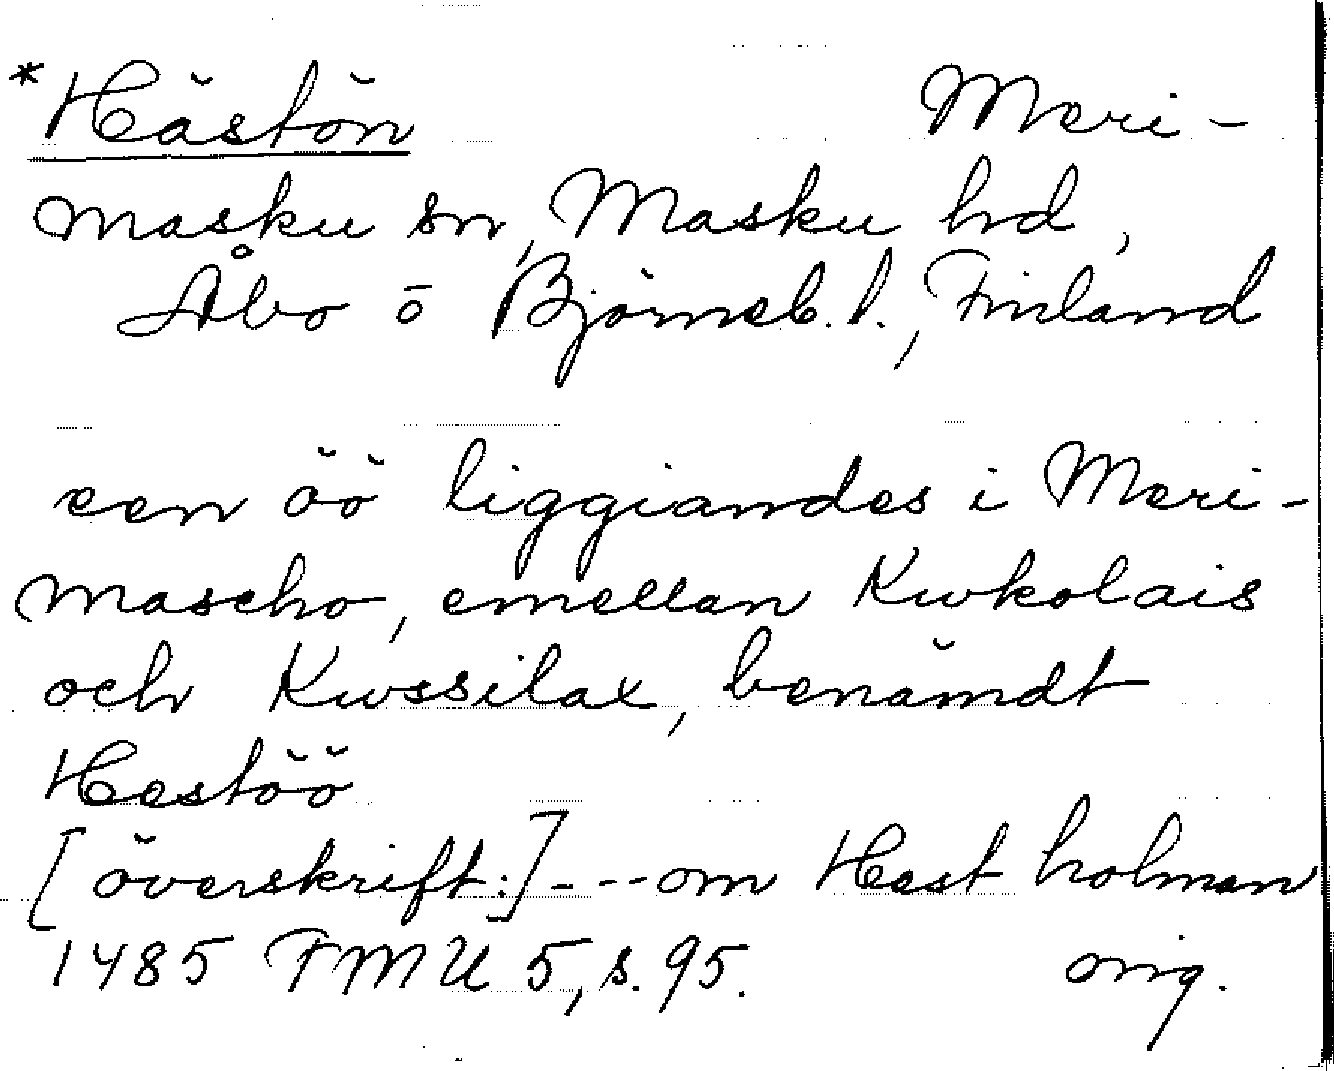 *Hästön Meri-
masku sn, Masku hd,
Åbo o Björneb. l., Finland
een öö liggiandes i Meri-
mascho, emellan Kwkolais
och Kwssilax, benämdt
Hestöö
[överskrift:]---om Hest holmen
1485 FMU 5, s. 95. orig.